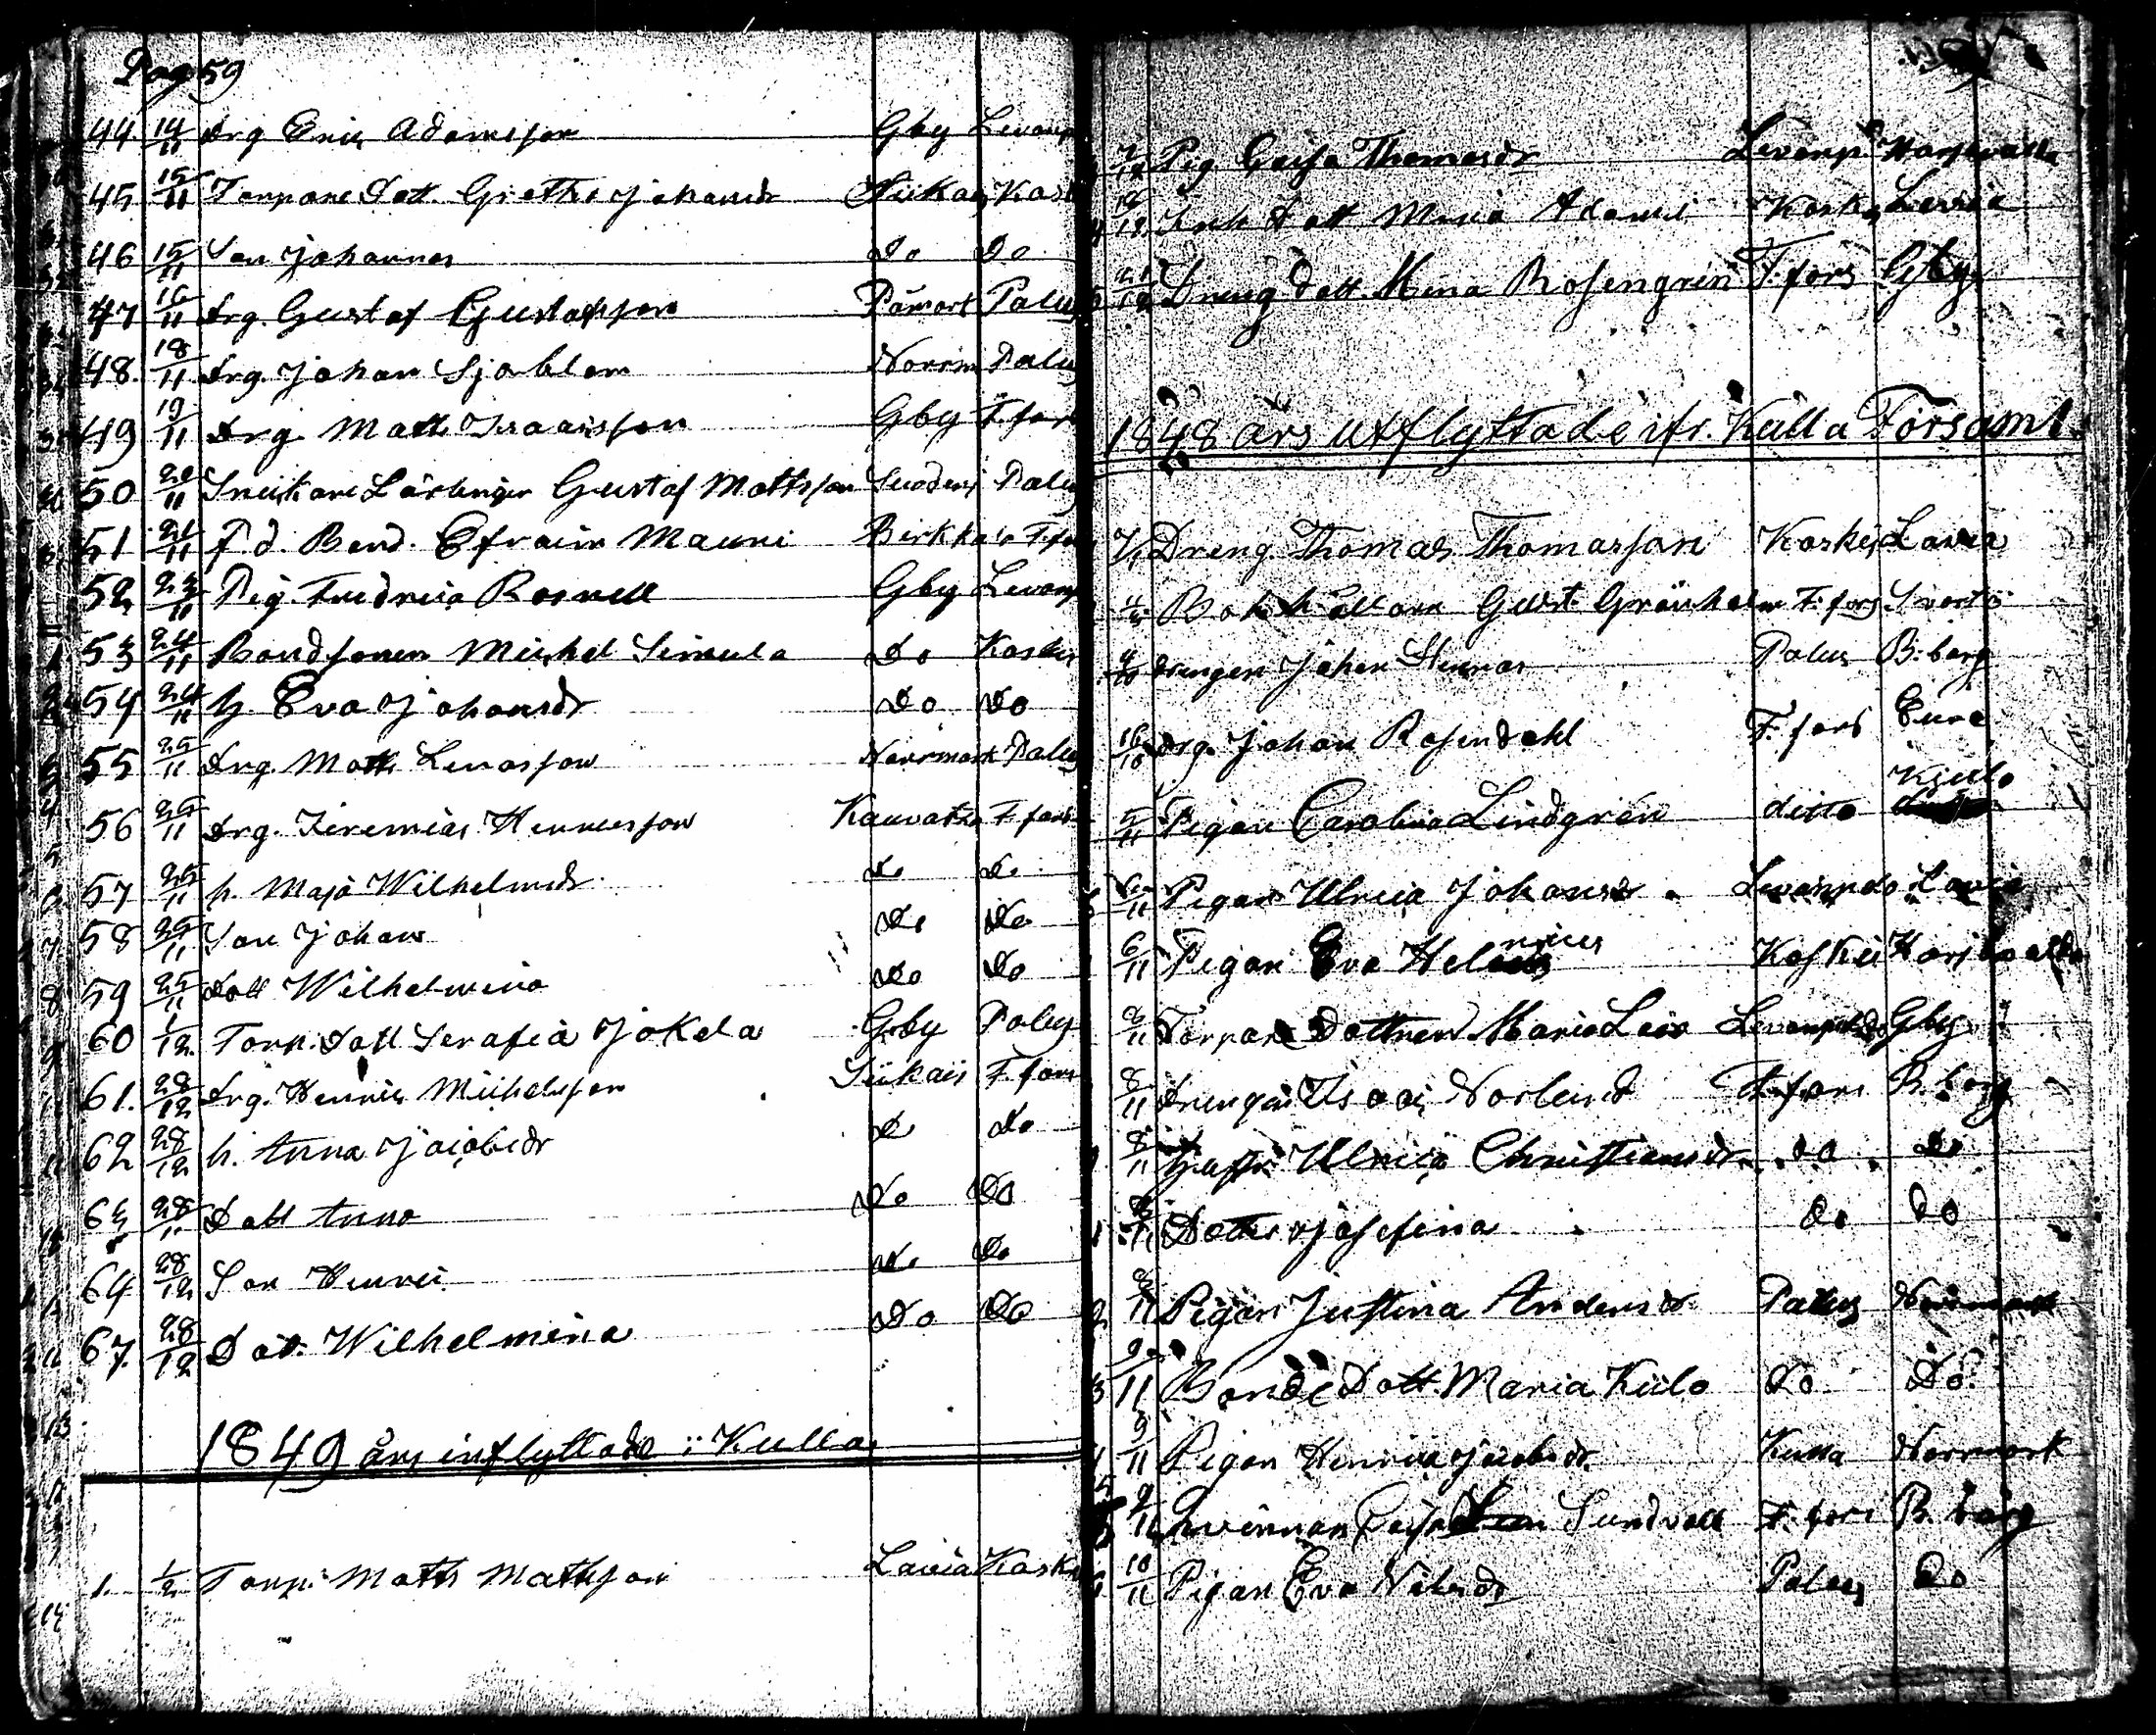 Pag 59
44 14/11 Drg Eric Adamsson Gby Levanp
45 15/11 Torpare Dott. Gretha Johansdr Siikais Kask
46 15/11 Son Johannes Do Do
47 16/11 Drg. Gustaf Gustafsson Påmark Palus
48. 18/11 Drg. Johan Sjöblom Norrm Palus
49 19/11 Drg Matts Isaacsson Gby F. fors
50 20/11 Snickare Lärlingen Gustaf Mattsson Palus
51 21/11 f. d. Bond. Efraim Mauri Birkkala F. fo
52 23/11 Pig. Fredrica Rosnell Gby Levanp
53 24/11 Bondsonen Michel Simula Do Koskis
54 24/11 h. Eva Johansdr Do Do
55 25/11 Drg. Matts Lucasson Norrmark Palus
56 25/11 Drg. Jeremias Henricsson Kauvatsa F. fors
57 25/11 h. Maja Wilhelmsdr. Do Do
58 25/11 Son Johan Do Do
59 25/11 Dott Wilhelmina Do Do
60 1/12. Torp. Dott Serafia Jokela Gby Palus
61. 28/12 Drg. Henric Michelsson Siikais F. fors
62 28/12 h. Anna Jacobsdr Do Do
63 28/11 Dott Anna Do Do
64 28/12 Son Henric Do Do
67. 28/12 Dot. Wilhelmina Do Do
1849 års inflyttade i Kulla
1. 1/2 Torp. Matts Mattsson Lavia Koskis
7/12 Pig Caisa Thomasdr Levanp
18/12 Inh Dott Maria Adams Koskis Lavia
21/12 Dreng dott. Mina Rosengren F. fors Gby
1848 års utflyttade ifr. Kulla Församl.
7/1 Dreng Thomas Thomasson Koskis Lavia
Bokhållare Gust. Grönholm F. fors
Drengen Johan Stenroos Palus B: borg
16/10 Drg. Johan Rosendahl F. fors Eura
5/11 Pigan Carolina Lindgrén ditto Kiulo
6/11 Pigan Ulrica Johansdr Levanpelto Lavia
6/11 Pigan Eva Helenius Koskis
6/11 Torpare Dottren Maria Lisa Levanpelto Gby
8/11 Drengen Isaac Norlund F. fors B. borg
8/11 Hustr. Ulrica Christiansdr. do do
8/11 Dotter Josefina do do
2 8/11 Pigan Justina Andersdr Palus Norrmark
3 9/11 Bonde Dott. Maria Kiilo do Do.
4 9/11 Pigan Henrica Jacobsdr. Kulla Norrmark
5 9/11 Qvinnan Caisa Sundvall F. fors B. borg
6 10/11 Pigan Eva Nilsdr Palus Do